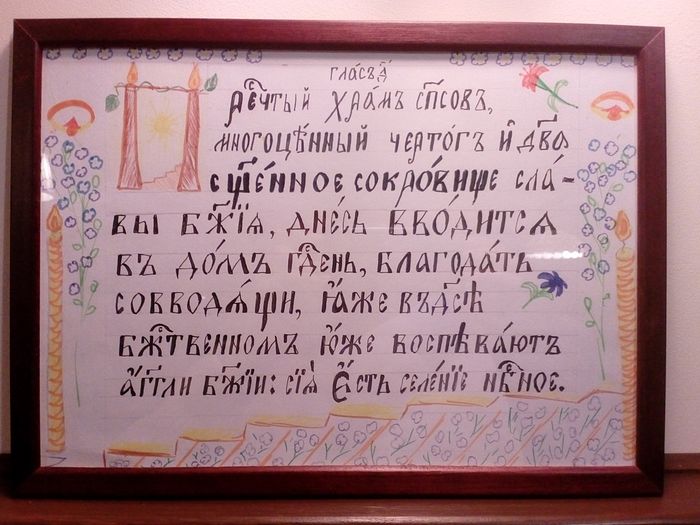 гла́съ д҃
П реч҇тый хра́мъ сп҃совъ,
многоцѣ́нный черто́гъ и҆ дв҃а
сщ҃е́нное сокро́вище сла́-
вы бж҃їѧ, дне́сь вво́дитсѧ
въ до́мъ гд҇ень, благода́ть
совводѧ́щи, ꙗ҆́же въ дс҃ѣ
бж҇твенномъ ю҆́же воспѣва́ютъ
а҆́гг҃ли бж҃їи: сїѧ̀ є҆́сть селе́нїе нб҇ное.